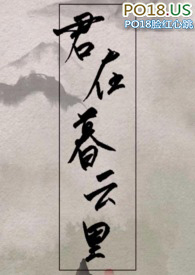 PO18.US
PO18脸红心跳
君在暮云里